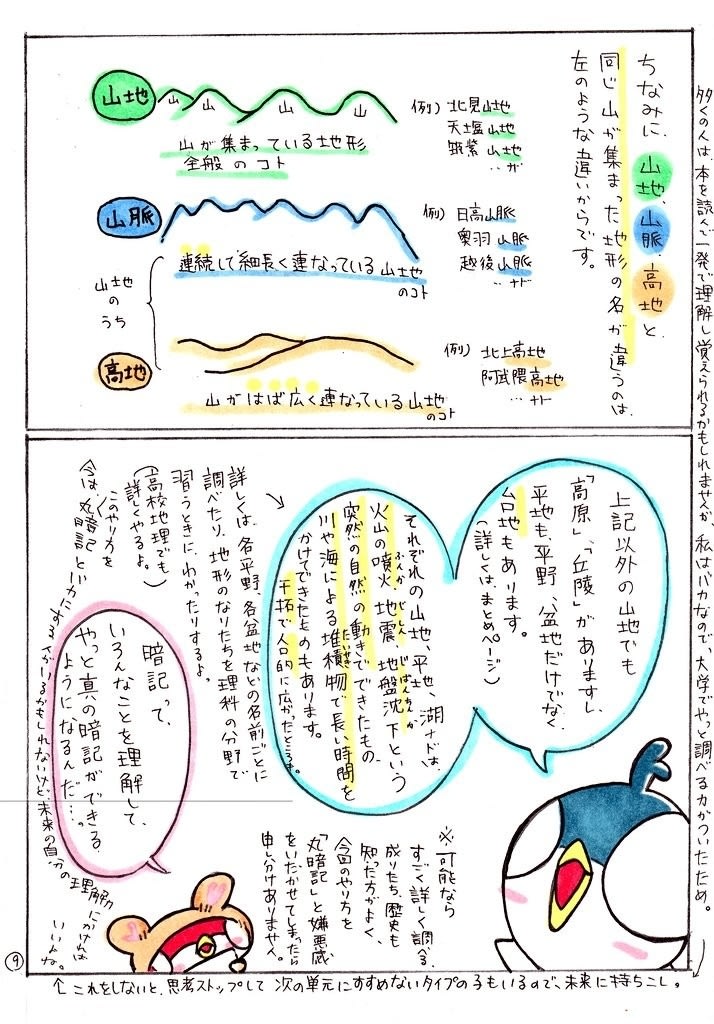 多くの人は、本を読んで一発で理解し覚えられるかもしれませんが、私はバカなので、大学でやっと調べる力がついたため。
ちなみに、山地、山脈、高地と、
同じ山が集まった地形の名が違うのは、
左のような違いからです。
山地
山 山 山 山
山が集まっている地形
全般のコト
例) 北見山地
天塩山地
筑紫山地
‥が
山脈
連続して細長く連なっている山地
のコト
例) 日高山脈
奥羽山脈
越後山脈
‥ナド
山地
の
うち
高地
山がはば広く連なっている山地
のコト
例) 北上高地
阿武隈高地
‥ナド
上記以外の山地でも
「高原」、「丘陵」がありますし、
平地も、平野、盆地だけでなく、
台地もあります。
(詳しくは、まとめページ)
それぞれの山地、平地、湖ナドは、
火山の噴火、地震、地盤沈下という
ふんか じしん じばんちんか
突然の自然の動きでできたもの、
川や海による堆積物で長い時間を
たいせき
かけてできたものもあります。
干拓で人口的に広がったところも。
詳しくは、各平野、各盆地などの名前ごとに
調べたり、地形のなりたちを理科の分野で
習うときに、わかったりするよ。
(高校地理でも
詳しくやるよ。)
このやり方を
今は、丸暗記といやだと
人がいるかもしれないけど、未来の自分の理解にかければ
いいよね。
暗記って、
いろんなことを理解して、
やっと真の暗記ができる
ようになるんだ…。
※可能なら
すごく詳しく調べる、
成りたち、歴史も
知った方がよく、
今回のやり方を
「丸暗記」と嫌悪感
をいだかせてしまったら
申し分けありません。
↑これをしないと、思考ストップして 次の単元にすすめないタイプの子もいるので、未来に持ちこし。
9